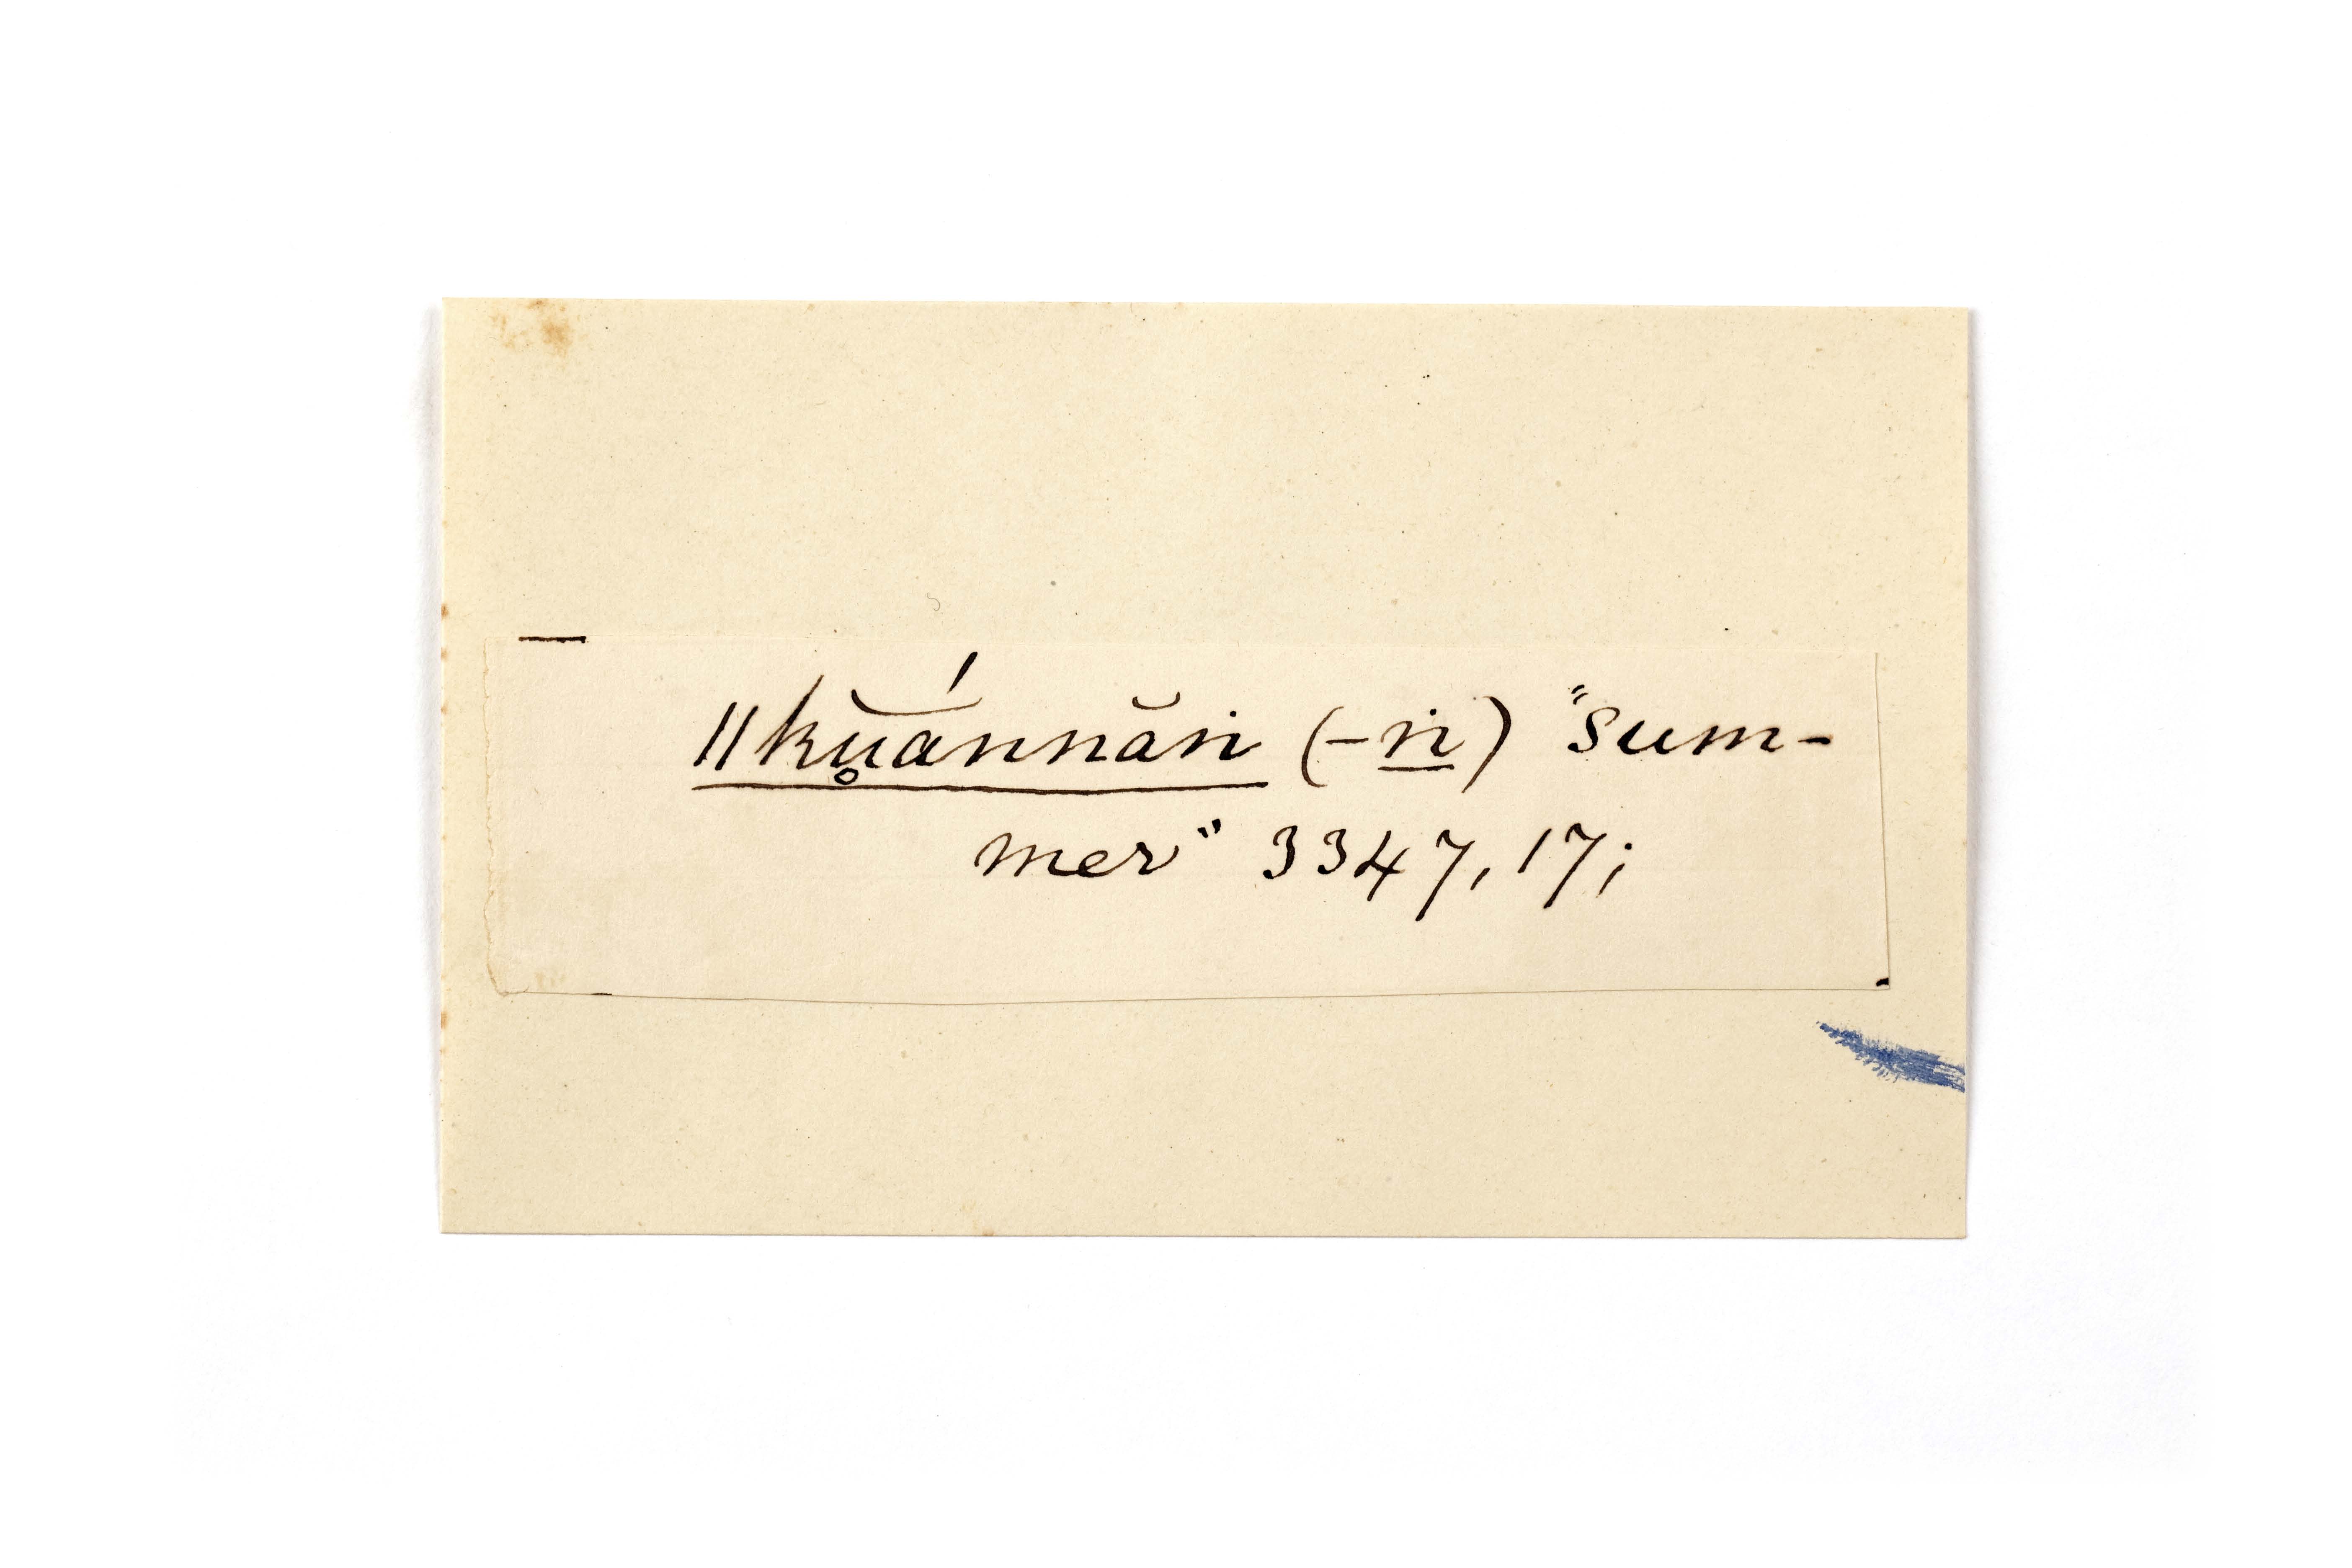 ǁku̥͝ánnăṅ (-ṅ) "sum-
mer" 3347, 17;